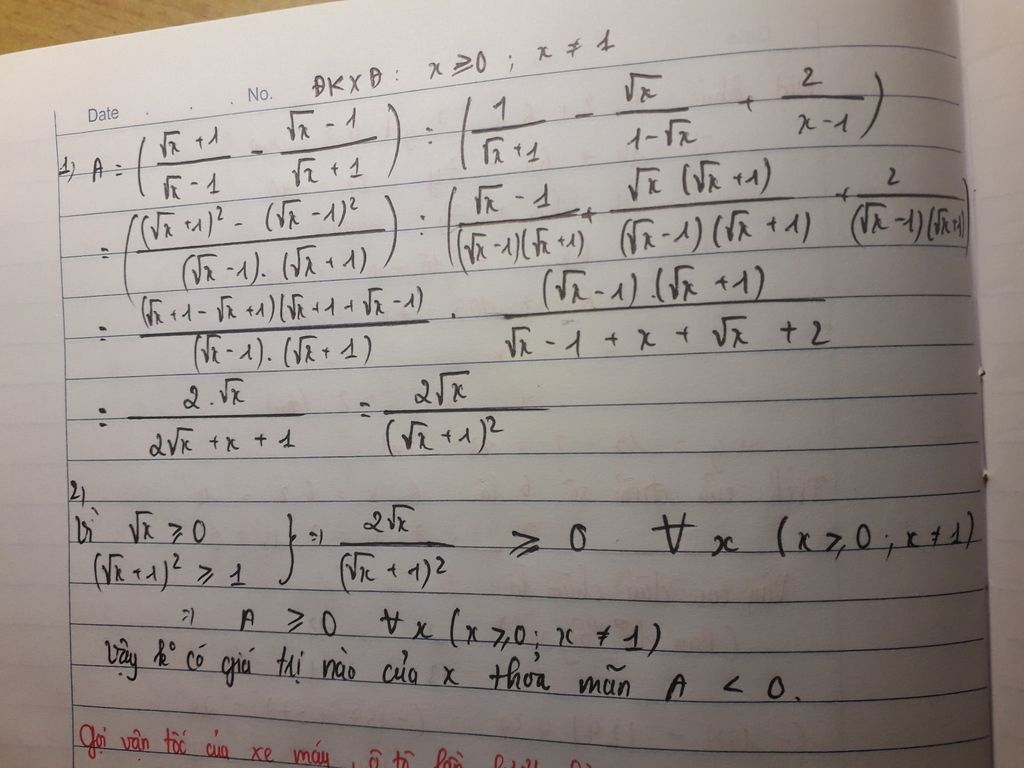 ĐKXĐ: x ⩾ 0 ; x ≠ 1
Date . . . No.
1) A = ( (√x + 1)/(√x - 1) - (√x - 1)/(√x + 1) ) : ( 1/(√x + 1) - √x/(1 - √x) + 2/(x - 1) )
= ( ((√x + 1)² - (√x - 1)²)/((√x - 1).(√x + 1)) ) : ( (√x - 1)/((√x - 1)(√x + 1)) + (√x (√x + 1))/((√x - 1)(√x + 1)) + 2/((√x - 1)(√x + 1)) )
= ((√x + 1 - √x + 1)(√x + 1 + √x - 1))/((√x - 1).(√x + 1)) . ((√x - 1).(√x + 1))/(√x - 1 + x + √x + 2)
= (2.√x)/(2√x + x + 1) = (2√x)/((√x + 1)²)
2)
Vì √x ⩾ 0
(√x + 1)² ⩾ 1 } => (2√x)/((√x + 1)²) ⩾ 0 ∀ x (x ⩾ 0 ; x ≠ 1)
=> A ⩾ 0 ∀ x (x ⩾ 0 ; x ≠ 1)
Vậy k° có giá trị nào của x thỏa mãn A < 0.
Gọi vận tốc của xe máy, ô tô